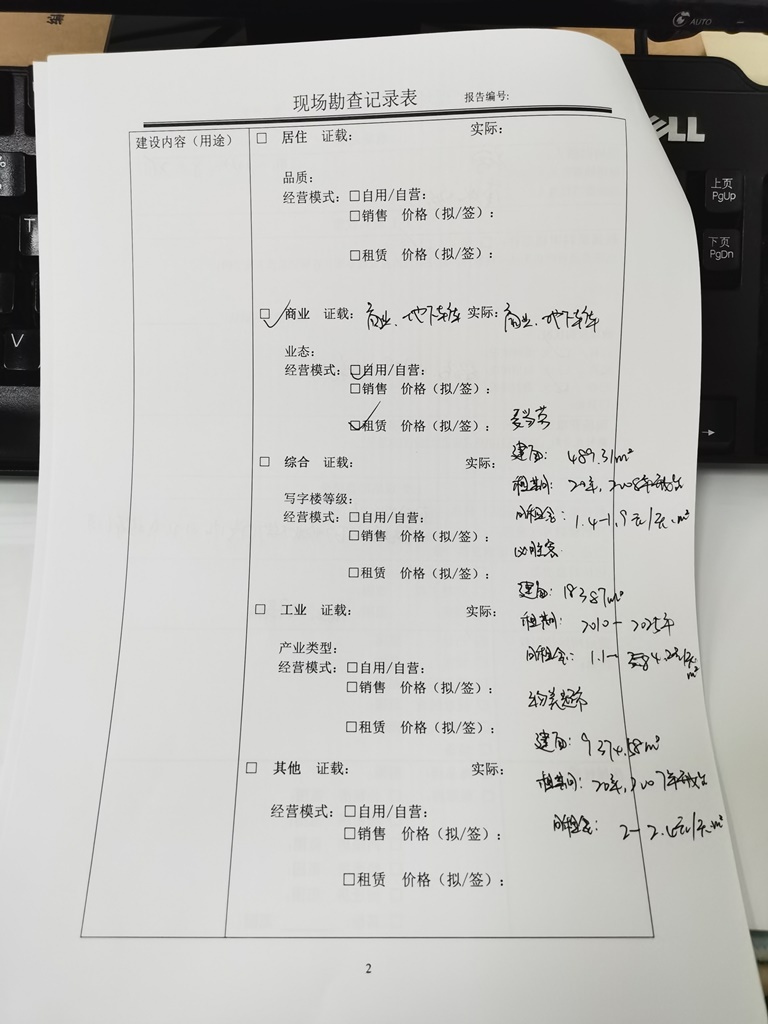 AUTO
现场勘查记录表 报告编号:
建设内容（用途） □ 居住 证载: 实际:
品质:
经营模式: □自用/自营:
□销售 价格（拟/签）:
□租赁 价格（拟/签）:
☑ 商业 证载: 商业、地下车库 实际: 商业、地下车库
业态:
经营模式: ☑自用/自营:
□销售 价格（拟/签）:
☑租赁 价格（拟/签）: 麦当劳
建面: 489.31m²
□ 综合 证载: 实际:
租期: 20年, 2008年开始
写字楼等级:
经营模式: □自用/自营:
日租金: 1.4-1.9元/天·m²
□销售 价格（拟/签）:
必胜客
□租赁 价格（拟/签）:
建面: 383.87m²
□ 工业 证载: 实际:
租期: 2010-2025年
产业类型:
日租金: 1.1-
经营模式: □自用/自营:
□销售 价格（拟/签）:
物美超市
□租赁 价格（拟/签）:
建面: 9374.58m²
□ 其他 证载: 实际:
租期: 20年, 2007年开始
经营模式: □自用/自营:
□销售 价格（拟/签）:
日租金: 2-2.6元/天·m²
□租赁 价格（拟/签）:
2
DELL
上页
PgUp
下页
PgDn
T
V
%